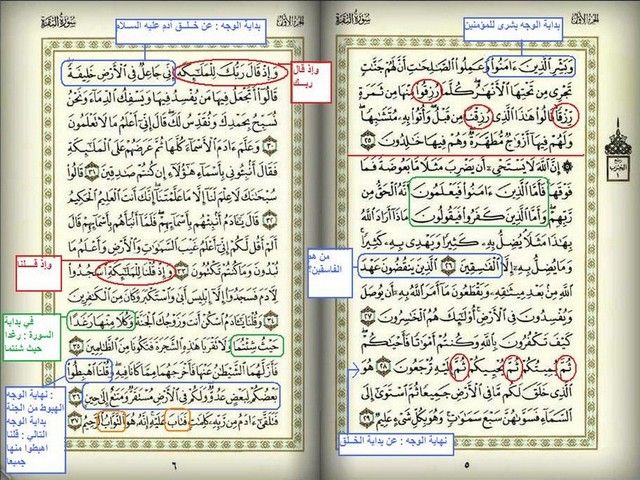 بداية الوجه بشرى للمؤمنين
الجزء الأول
سورة البقرة
وَبَشِّرِ ٱلَّذِينَ ءَامَنُوا۟ وَعَمِلُوا۟ ٱلصَّٰلِحَٰتِ أَنَّ لَهُمْ جَنَّٰتٍ
تَجْرِى مِن تَحْتِهَا ٱلْأَنْهَٰرُ كُلَّمَا رُزِقُوا۟ مِنْهَا مِن ثَمَرَةٍ
رِّزْقًا قَالُوا۟ هَٰذَا ٱلَّذِى رُزِقْنَا مِن قَبْلُ وَأُتُوا۟ بِهِۦ مُتَشَٰبِهًا
وَلَهُمْ فِيهَآ أَزْوَٰجٌ مُّطَهَّرَةٌ وَهُمْ فِيهَا خَٰلِدُونَ ٢٥
۞ إِنَّ ٱللَّهَ لَا يَسْتَحْىِۦٓ أَن يَضْرِبَ مَثَلًا مَّا بَعُوضَةً فَمَا
فَوْقَهَا فَأَمَّا ٱلَّذِينَ ءَامَنُوا۟ فَيَعْلَمُونَ أَنَّهُ ٱلْحَقُّ مِن
رَّبِّهِمْ وَأَمَّا ٱلَّذِينَ كَفَرُوا۟ فَيَقُولُونَ مَاذَآ أَرَادَ ٱللَّهُ
بِهَٰذَا مَثَلًا يُضِلُّ بِهِۦ كَثِيرًا وَيَهْدِى بِهِۦ كَثِيرًا
وَمَا يُضِلُّ بِهِۦٓ إِلَّا ٱلْفَٰسِقِينَ ٢٦ ٱلَّذِينَ يَنقُضُونَ عَهْدَ
ٱللَّهِ مِنۢ بَعْدِ مِيثَٰقِهِۦ وَيَقْطَعُونَ مَآ أَمَرَ ٱللَّهُ بِهِۦٓ أَن يُوصَلَ
وَيُفْسِدُونَ فِى ٱلْأَرْضِ أُو۟لَٰٓئِكَ هُمُ ٱلْخَٰسِرُونَ ٢٧
كَيْفَ تَكْفُرُونَ بِٱللَّهِ وَكُنتُمْ أَمْوَٰتًا فَأَحْيَٰكُمْ
ثُمَّ يُمِيتُكُمْ ثُمَّ يُحْيِيكُمْ ثُمَّ إِلَيْهِ تُرْجَعُونَ ٢٨ هُوَ
ٱلَّذِى خَلَقَ لَكُم مَّا فِى ٱلْأَرْضِ جَمِيعًا ثُمَّ ٱسْتَوَىٰٓ إِلَى
ٱلسَّمَآءِ فَسَوَّىٰهُنَّ سَبْعَ سَمَٰوَٰتٍ وَهُوَ بِكُلِّ شَىْءٍ عَلِيمٌ ٢٩
ربع
الحزب
١
من هم
الفاسقين؟
نهاية الوجه : عن بداية الخلق
٥
بداية الوجه : عن خلق آدم عليه السلام
الجزء الأول
سورة البقرة
وَإِذْ قَالَ رَبُّكَ لِلْمَلَٰٓئِكَةِ إِنِّى جَاعِلٌ فِى ٱلْأَرْضِ خَلِيفَةً
قَالُوٓا۟ أَتَجْعَلُ فِيهَا مَن يُفْسِدُ فِيهَا وَيَسْفِكُ ٱلدِّمَآءَ وَنَحْنُ
نُسَبِّحُ بِحَمْدِكَ وَنُقَدِّسُ لَكَ قَالَ إِنِّىٓ أَعْلَمُ مَا لَا تَعْلَمُونَ
٣٠ وَعَلَّمَ ءَادَمَ ٱلْأَسْمَآءَ كُلَّهَا ثُمَّ عَرَضَهُمْ عَلَى ٱلْمَلَٰٓئِكَةِ
فَقَالَ أَنۢبِـُٔونِى بِأَسْمَآءِ هَٰٓؤُلَآءِ إِن كُنتُمْ صَٰدِقِينَ ٣١ قَالُوا۟
سُبْحَٰنَكَ لَا عِلْمَ لَنَآ إِلَّا مَا عَلَّمْتَنَآ إِنَّكَ أَنتَ ٱلْعَلِيمُ ٱلْحَكِيمُ
٣٢ قَالَ يَٰٓـَٔادَمُ أَنۢبِئْهُم بِأَسْمَآئِهِمْ فَلَمَّآ أَنۢبَأَهُم بِأَسْمَآئِهِمْ قَالَ
أَلَمْ أَقُل لَّكُمْ إِنِّىٓ أَعْلَمُ غَيْبَ ٱلسَّمَٰوَٰتِ وَٱلْأَرْضِ وَأَعْلَمُ مَا
تُبْدُونَ وَمَا كُنتُمْ تَكْتُمُونَ ٣٣ وَإِذْ قُلْنَا لِلْمَلَٰٓئِكَةِ ٱسْجُدُوا۟
لِـَٔادَمَ فَسَجَدُوٓا۟ إِلَّآ إِبْلِيسَ أَبَىٰ وَٱسْتَكْبَرَ وَكَانَ مِنَ ٱلْكَٰفِرِينَ
٣٤ وَقُلْنَا يَٰٓـَٔادَمُ ٱسْكُنْ أَنتَ وَزَوْجُكَ ٱلْجَنَّةَ وَكُلَا مِنْهَا رَغَدًا
حَيْثُ شِئْتُمَا وَلَا تَقْرَبَا هَٰذِهِ ٱلشَّجَرَةَ فَتَكُونَا مِنَ ٱلظَّٰلِمِينَ ٣٥
فَأَزَلَّهُمَا ٱلشَّيْطَٰنُ عَنْهَا فَأَخْرَجَهُمَا مِمَّا كَانَا فِيهِ وَقُلْنَا ٱهْبِطُوا۟
بَعْضُكُمْ لِبَعْضٍ عَدُوٌّ وَلَكُمْ فِى ٱلْأَرْضِ مُسْتَقَرٌّ وَمَتَٰعٌ إِلَىٰ حِينٍ ٣٦
فَتَلَقَّىٰٓ ءَادَمُ مِن رَّبِّهِۦ كَلِمَٰتٍ فَتَابَ عَلَيْهِ إِنَّهُۥ هُوَ ٱلتَّوَّابُ ٱلرَّحِيمُ ٣٧
وإذ قال
ربك
وإذ قلنا
في بداية
السورة : رغدا
حيث شئتما
نهاية الوجه :
الهبوط من الجنة
بداية الوجه
التالي : قلنا
اهبطوا منها
جميعا
٦